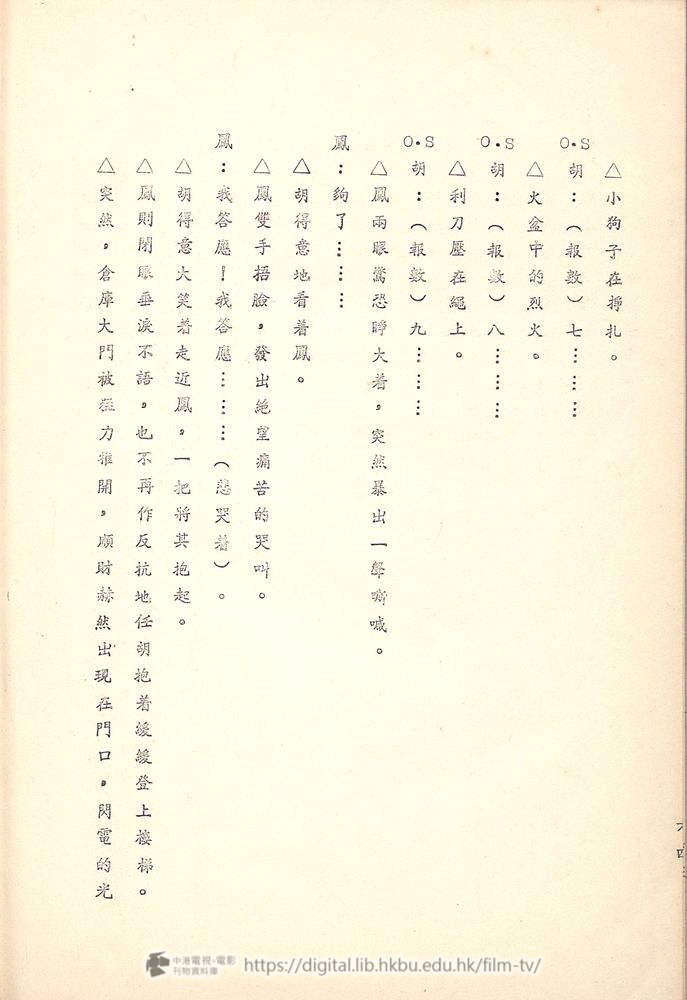 △小狗子在掙扎。
O.S胡：（報數）七………
△火盆中的烈火。
O.S胡：（報數）八………
△利刀壓在繩上。
O.S胡：（報數）九………
△鳳兩眼驚恐睜大着，突然暴出一聲嘶喊。
鳳：夠了………
△胡得意地看着鳳。
△鳳雙手捂臉，發出絕望痛苦的哭叫。
鳳：我答應！我答應………（悲哭着）。
△胡得意大笑着走近鳳，一把將其抱起。
△鳳則閉眼垂淚不語，也不再作反抗地任胡抱着緩緩登上樓梯。
△突然，倉庫大門被猛力推開，順財赫然出現在門口，閃電的光
中港電視·電影
刊物資料庫
https://digital.lib.hkbu.edu.hk/film-tv/